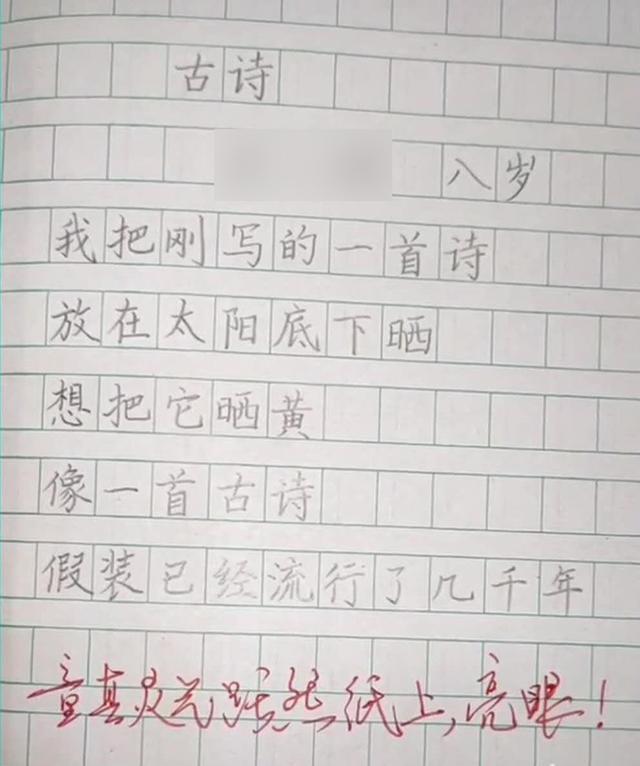 古诗
八岁
我把刚写的一首诗
放在太阳底下晒
想把它晒黄
像一首古诗
假装已经流行了几千年
童真灵气跃然纸上,亮眼!